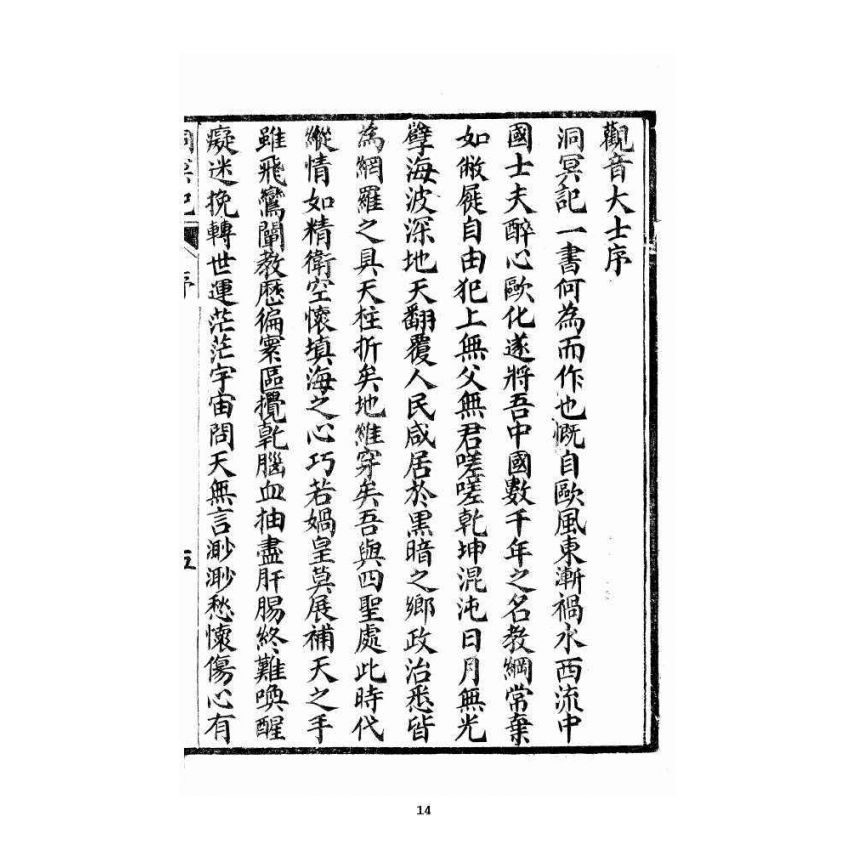 觀音大士序
洞冥記一書何為而作也慨自歐風東漸禍水西流中
國士夫醉心歐化遂將吾中國數千年之名教綱常棄
如敝屣自由犯上無父無君嗟嗟乾坤混沌日月無光
孽海波深地天翻覆人民咸居於黑暗之鄉政治悉皆
為網羅之具天柱折矣地維穿矣吾與四聖處此時代
縱情如精衛空懷填海之心巧若媧皇莫展補天之手
雖飛鸞闡教歷徧寰區攪乾腦血抽盡肝腸終難喚醒
癡迷挽轉世運茫茫宇宙問天無言渺渺愁懷傷心有
洞冥記 序 五
14